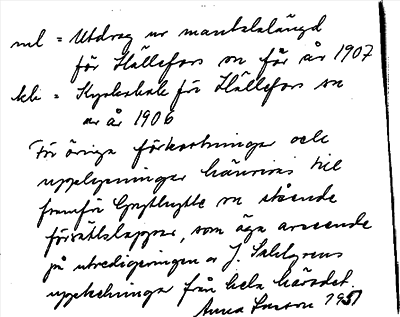 ml = Utdrag ur mantalslängd
för Hällefors sn för år 1907
kb = Kyrkobok för Hällefors sn
av år 1906
För övriga förkortningar och
upplysningar hänvisas till
framför Grythytte sn stående
försättslappar, som äga avseende
på utredigeringen av J. Sahlgrens
uppteckningar från hela häradet.
Anna Larson 1951